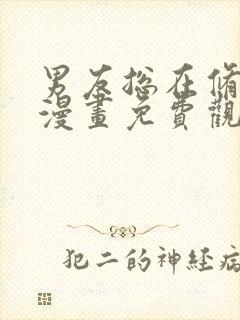 男友总在脩
漫畫免費觀
犯二的神经病